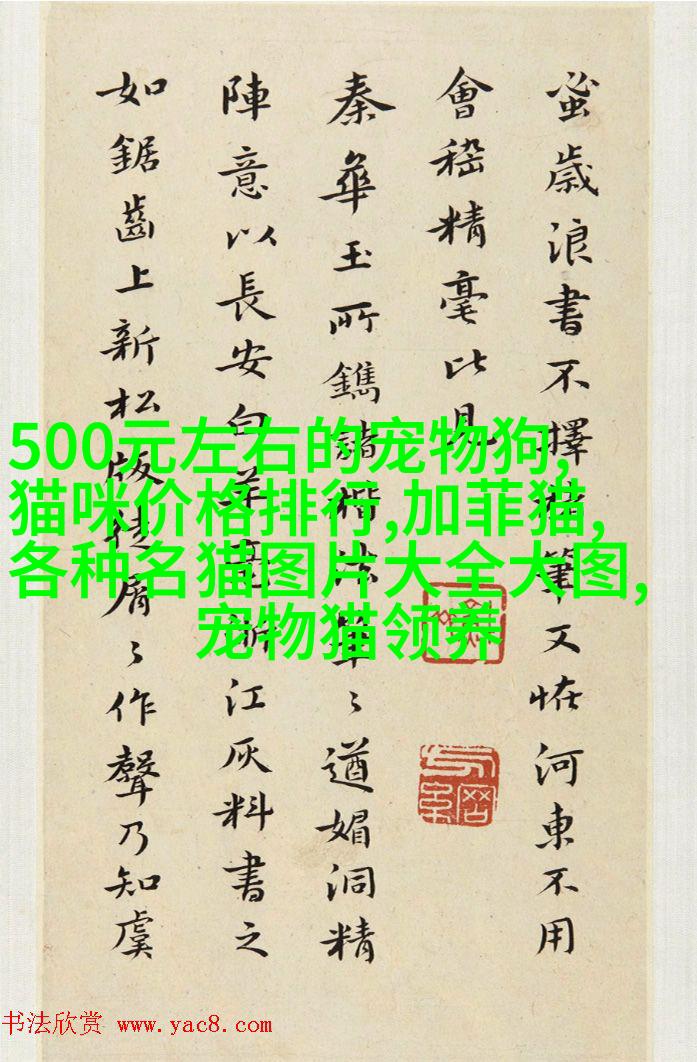 蚤歲浪書不擇筆又恠河東不用
會稽精毫比見
秦華玉所鐫諸楷法筆〻遒媚洞精
陣意以長安白羊江灰料書之
如鋸齒上新松版屑〻作聲乃知虞
500元左右的宠物狗,
猫咪价格排行,加菲猫,
各种名猫图片大全大图,
宠物猫领养
书法欣赏 www.yac8.com